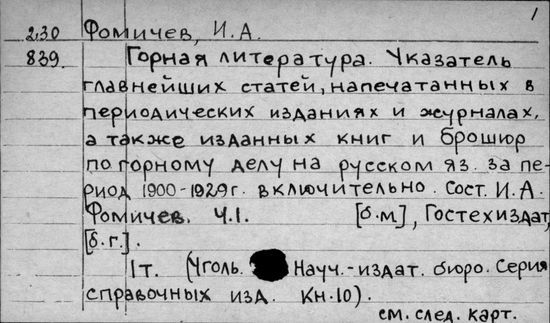 1
2,30 Фомичев, И.А.
839. Горная литература. Указатель
главнейших статей, напечатанных в
периодических изданиях и журналах,
а также изданных книг и брошюр
по горному делу на русском яз. за пе-
риод 1900-1929г. включительно. Сост. И.А.
Фомичев. Ч.1. [б.м], Гостехиздат,
[б.г.].
1т. (Уголь. Науч.-издат. бюро. Серия
справочных изд. Кн.10).
см. след. карт.